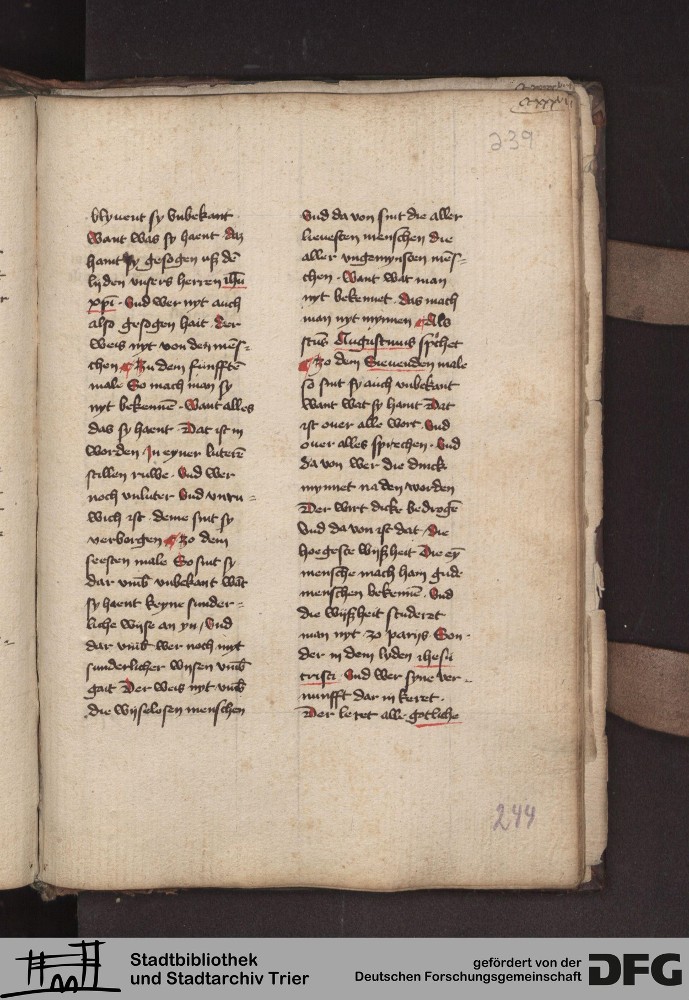 239
blyuent sy vnbekant
Want was sy haent · Daz
haint sy gesogen uß dē
lyden vnsers herren ihū
xp̄i · Vnd wer nyt auch
also gesogen hait · Der
weis nyt von den mēs=
chen · Zu dem fünfftē
male So mach man sy
nyt bekennē · Want alles
das sy haent · Dat ist in
worden In eyner luterē
stillen ruwe · Vnd wer
noch vnluter Vnd vnru=
wich ist · deme sint sy
verborgen Zo dem
seesten male So sint sy
dar vmb vnbekant wāt
sy haent keyne sunder=
liche wyse an yn / Vnd
dar vmb wer noch mit
sunderlicher wysen vmb
gait Der weis nyt vmb
die wyselosen menschen
Vnd da von sint die aller
lieuesten menschen die
aller vngemynsten mēs=
chen · Want wat man
nyt bekennet · das mach
man nyt mynnen · Als
sant Augustinus sprichet
Zo dem Sieuenden male
so sint sy auch vnbekant
Want wat sy haint Dat
ist ouer alle wort · Vnd
ouer alles sprechen · Vnd
da von wer die dinck
mynnet na den worden
Der wirt dicke bedrogē
Vnd da von ist dat / Die
hoegeste wyßheit Die eȳ
mensche mach ham gude
menschen bekennē · Vnd
die wyßheit studeret
man nyt zo parys Son=
der in dem lyden ihesu
cristi · Vnd wer syne ver=
nunfft dar in keret ·
Der leret alle gotliche
244
Stadtbibliothek
und Stadtarchiv Trier
gefördert von der
Deutschen Forschungsgemeinschaft
DFG